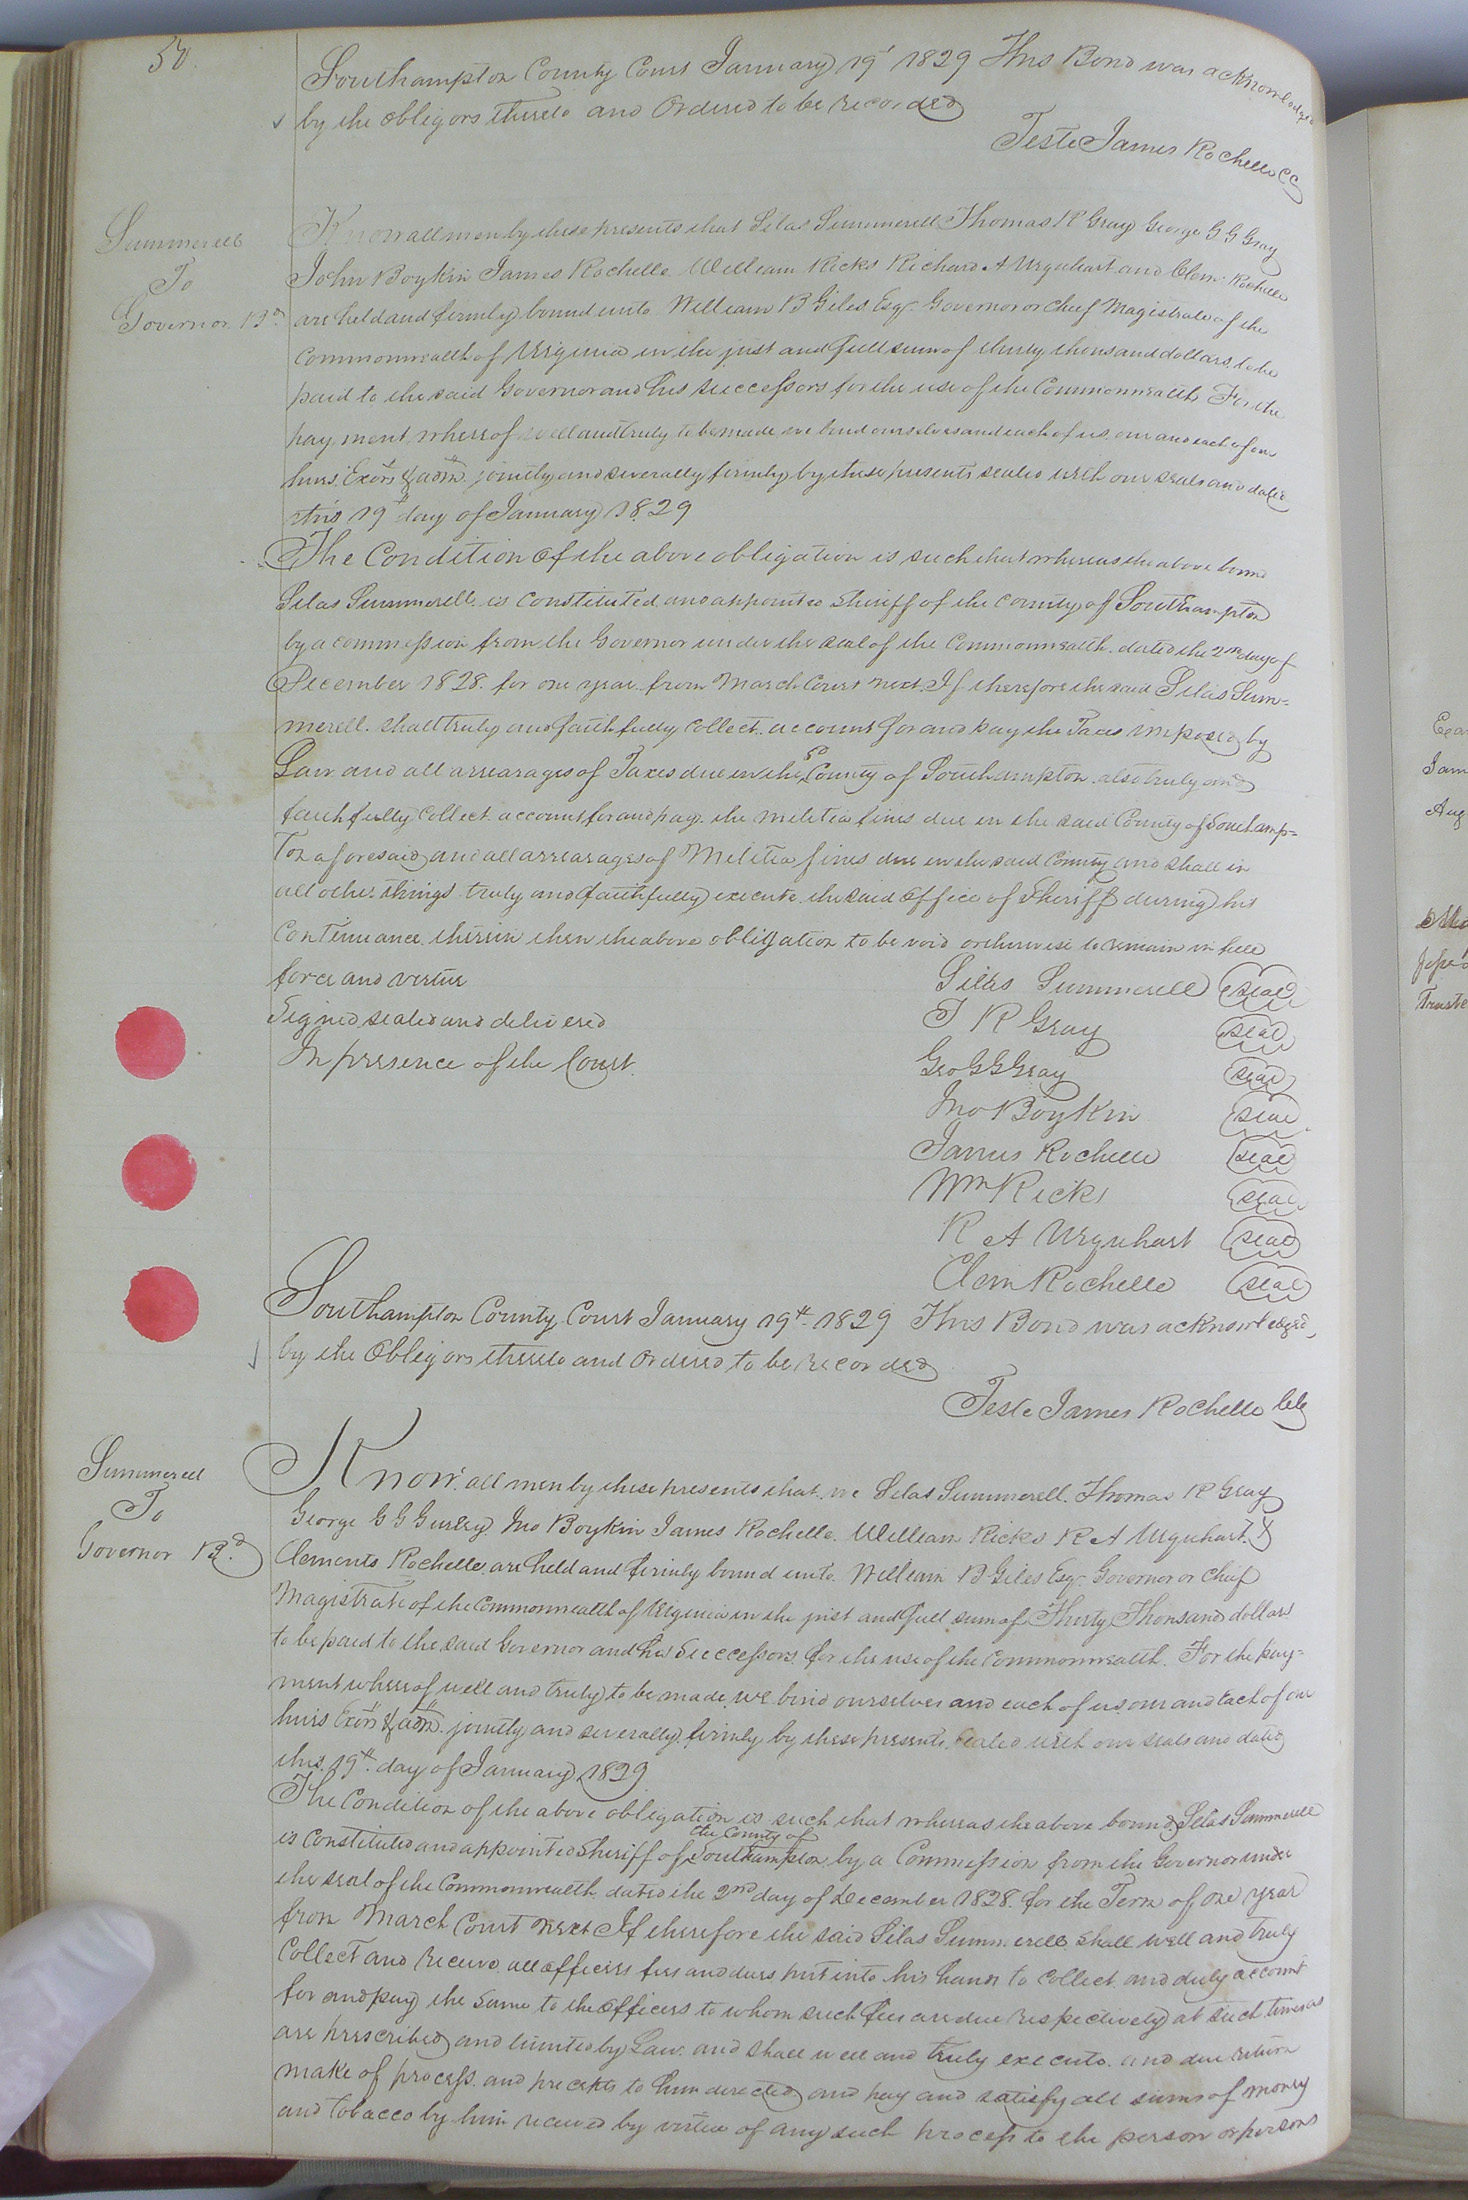 50.
Southampton County Court January 19' 1829 This Bond was acknowledged
by the obligors thereto and Ordered to be recorded
Teste James Rochelle CC
Summerell
To
Governor Bd
Know all men by these presents that Silas Summerell Thomas R Gray George G G Gray
John Boykin James Rochelle William Ricks Richard A Urquhart and Clem. Rochelle
are held and firmly bound unto William B Giles Esqr. Governor or Chief Magistrate of the
Commonwealth of Virginia in the just and full sum of thirty thousand dollars to be
paid to the said Governor and his successors for the use of the Commonwealth For the
payment whereof well and truly to be made we bind ourselves and each of us our and each of our
heirs Exors & adms. jointly and severally firmly by these presents sealed with our seals and dated
this 19th day of January 1829
The Condition of the above obligation is such that whereas the above bound
Silas Summerell is Constituted and appointed Sheriff of the County of Southampton
by a commission from the Governor under the seal of the Commonwealth dated the 2nd day of
December 1828. for one year from March Court next. If therefore the said Silas Sum-
merell. shall truly and faithfully collect. account for and pay the Taxes imposed by
Law and all arrearages of Taxes due in the sd County of Southampton. also truly and
faithfully collect account for and pay. the militia fines due in the said County of Southamp-
Ton aforesaid and all arrearages of Militia fines due in the said County and shall in
all other things truly and faithfully execute the said office of Sheriff during his
Continuance therein then the above obligation to be void otherwise to remain in full
force and virtue
Signed sealed and delivered
In presence of the Court.
Silas Summerell seal
T R Gray seal
Geo G G Gray seal
Jno Boykin seal
James Rochelle seal
Wm Ricks seal
R A Urquhart seal
Clem Rochelle seal
Southampton County Court January 19th. 1829 This Bond was acknowledged
by the Obligors thereto and Ordered to be Recorded
Teste James Rochelle Clk
Summerell
To
Governor Bd.
Know all men by these presents that we Silas Summerell. Thomas R Gray
George G G Gurley Jno Boykin James Rochelle. William Ricks R A Urquhart. &
Clements Rochelle are held and firmly bound unto William B Giles Esqr. Governor or Chief
Magistrate of the Commonwealth of Virginia in the just and full sum of Thirty Thousand dollars
to be paid to the said Governor and his Successors for the use of the Commonwealth. For the pay-
ment whereof well and truly to be made, we bind ourselves and each of us, our and Each of our
heirs Exors & adms. jointly and severally firmly by these presents sealed with our seals and dated
this 19th. day of January 1829
The Condition of the above obligation is such that whereas the above bound Silas Summerell
is Constituted and appointed Sheriff of the County of Southampton by a Commission from the Governor under
the seal of the Commonwealth dated the 2nd day of December 1828. for the Term of one year
from March Court next If therefore the said Silas Summerell shall well and truly
Collect and receive all officers fees and dues put into his hands to collect and duly account
for and pay the same to the officers to whom such fees are due respectively at such times as
are prescribed and limited by Law. and shall well and truly execute and due return
make of process. and precepts to him directed and pay and satisfy all sums of money
and Tobacco by him received by virtue of any such process to the person or persons